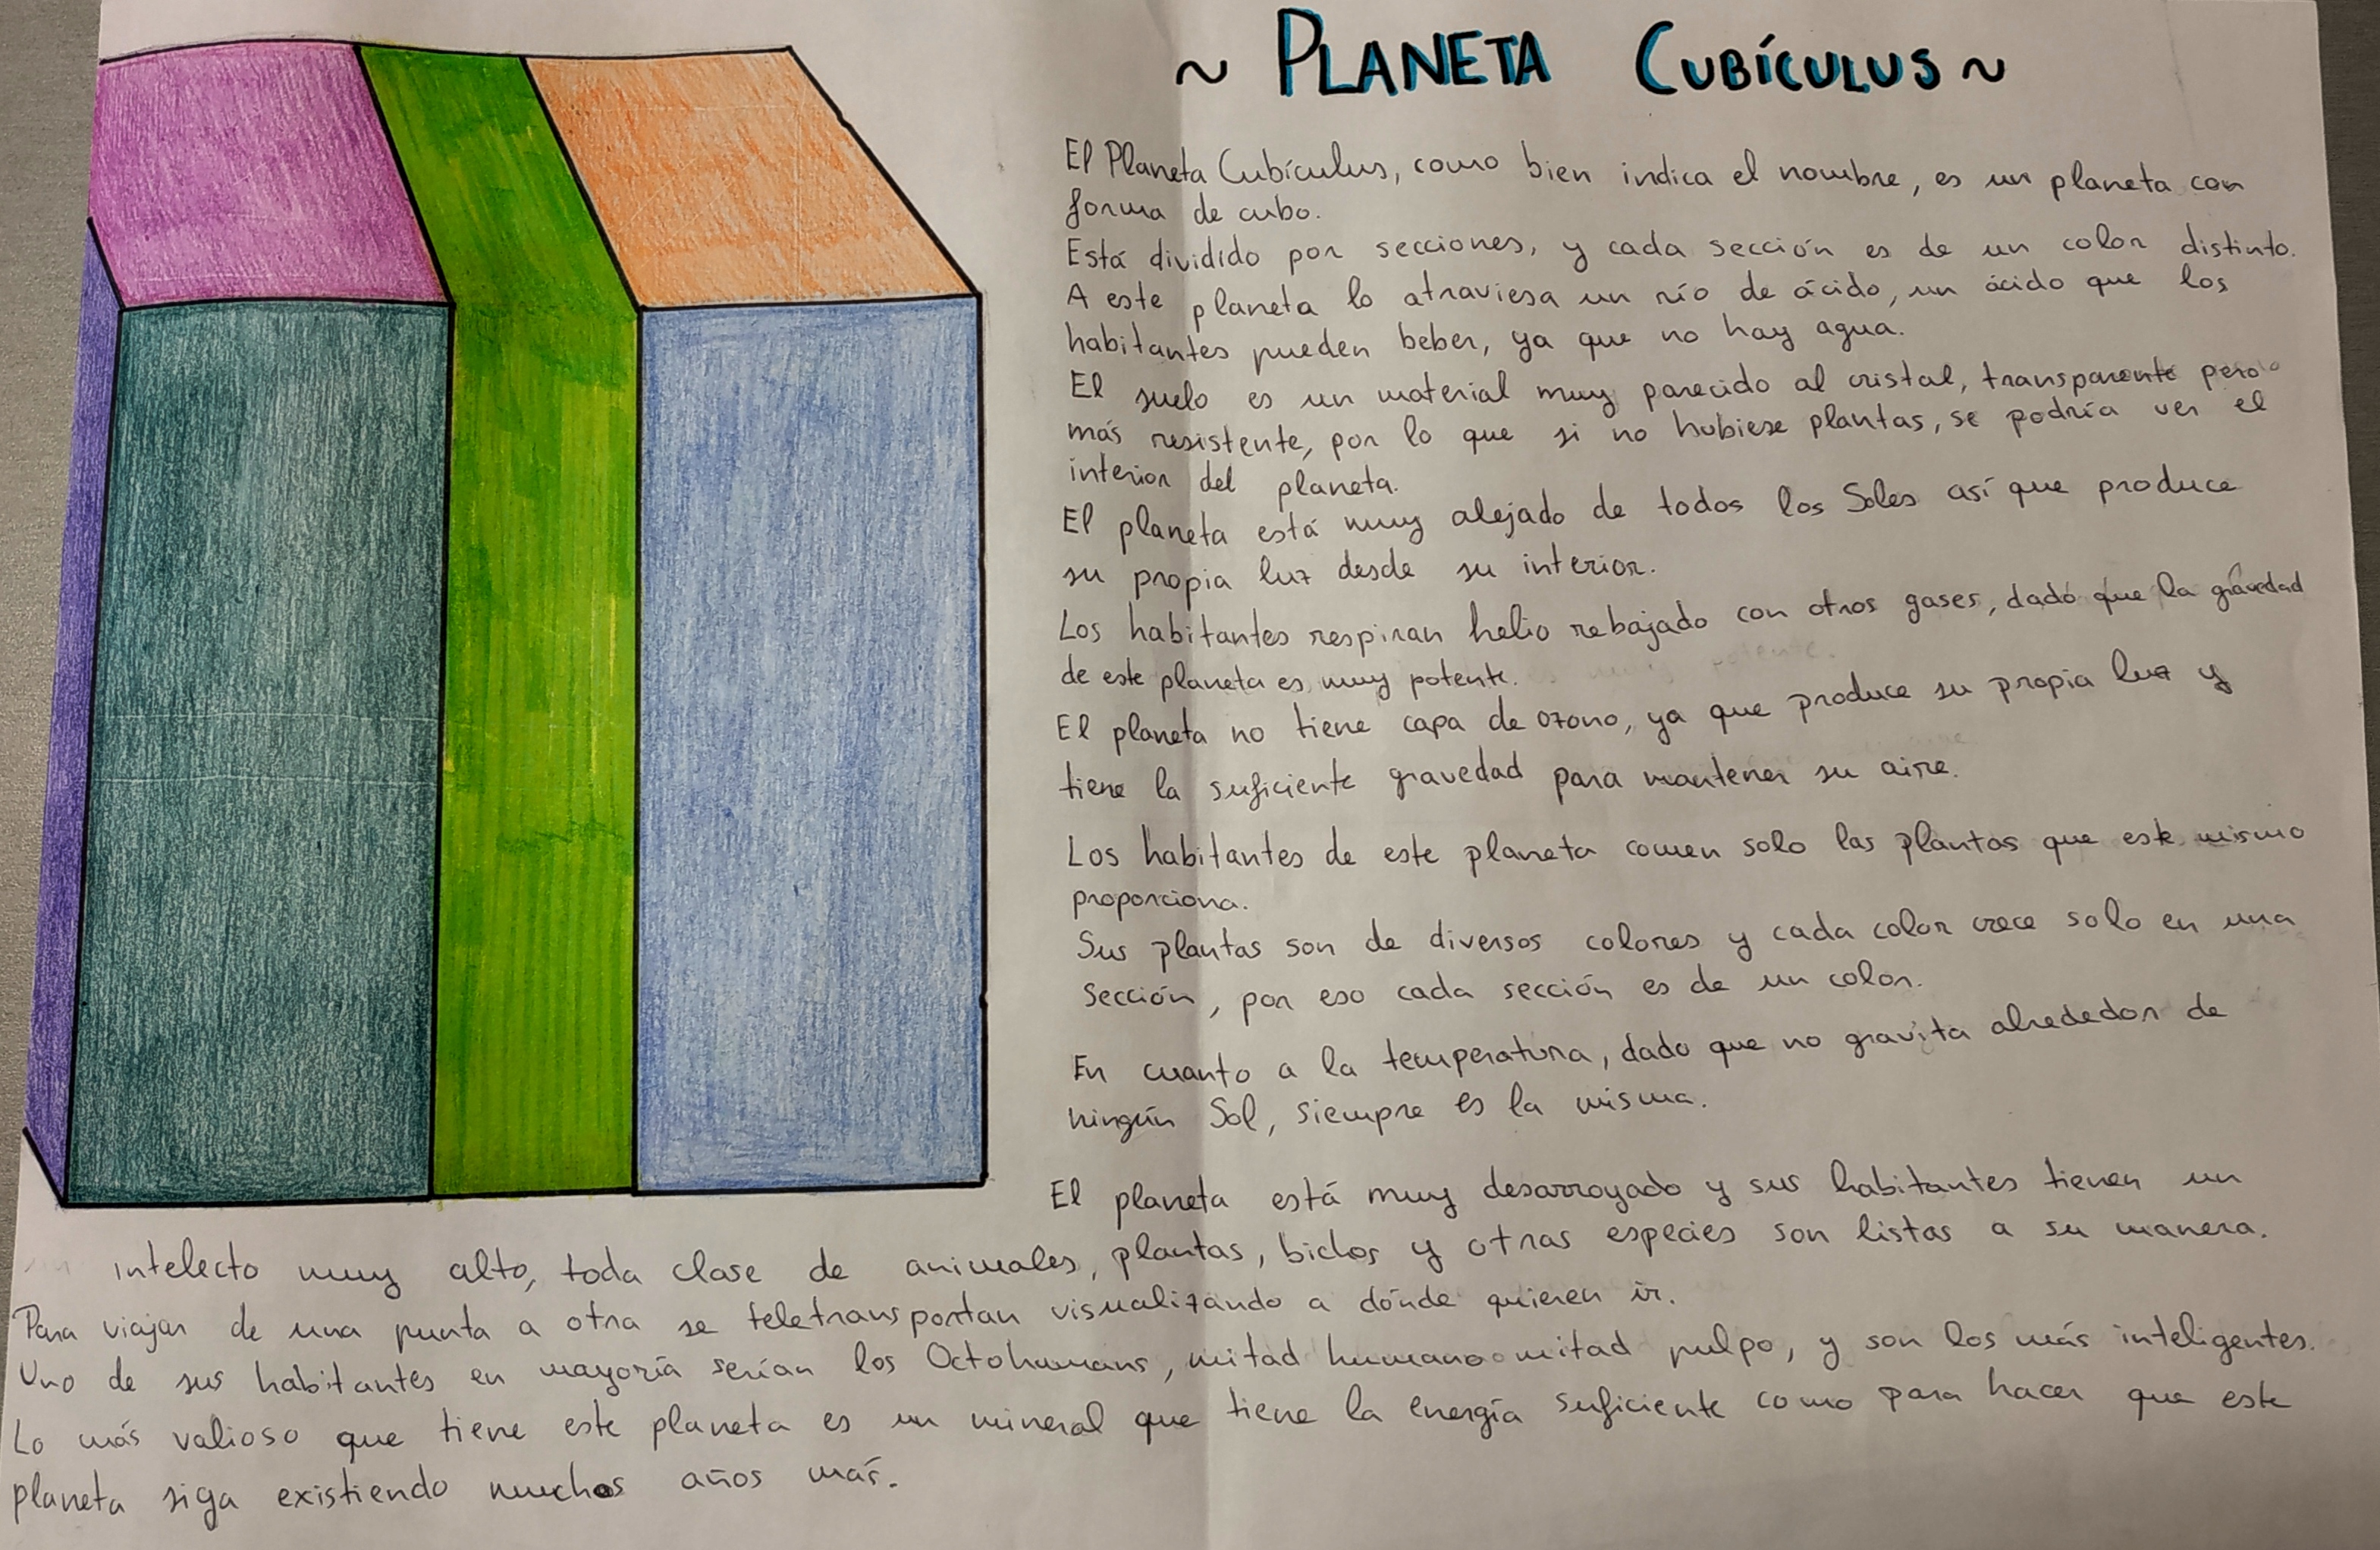 ~ PLANETA CUBÍCULUS ~
El Planeta Cubículus, como bien indica el nombre, es un planeta con
forma de cubo.
Está dividido por secciones, y cada sección es de un color distinto.
A este planeta lo atraviesa un río de ácido, un ácido que los
habitantes pueden beber, ya que no hay agua.
El suelo es un material muy parecido al cristal, transparente pero
más resistente, por lo que si no hubiese plantas, se podría ver el
interior del planeta.
El planeta está muy alejado de todos los Soles así que produce
su propia luz desde su interior.
Los habitantes respiran helio rebajado con otros gases, dado que la gravedad
de este planeta es muy potente.
El planeta no tiene capa de ozono, ya que produce su propia luz y
tiene la suficiente gravedad para mantener su aire.
Los habitantes de este planeta comen solo las plantas que este mismo
proporciona.
Sus plantas son de diversos colores y cada color crece solo en una
sección, por eso cada sección es de un color.
En cuanto a la temperatura, dado que no gravita alrededor de
ningún Sol, siempre es la misma.
El planeta está muy desarroyado y sus habitantes tienen un
intelecto muy alto, toda clase de animales, plantas, bichos y otras especies son listas a su manera.
Para viajar de una punta a otra se teletransportan visualizando a dónde quieren ir.
Uno de sus habitantes en mayoría serían los Octohumans, mitad humano mitad pulpo, y son los más inteligentes.
Lo más valioso que tiene este planeta es un mineral que tiene la energía suficiente como para hacer que este
planeta siga existiendo muchos años más.